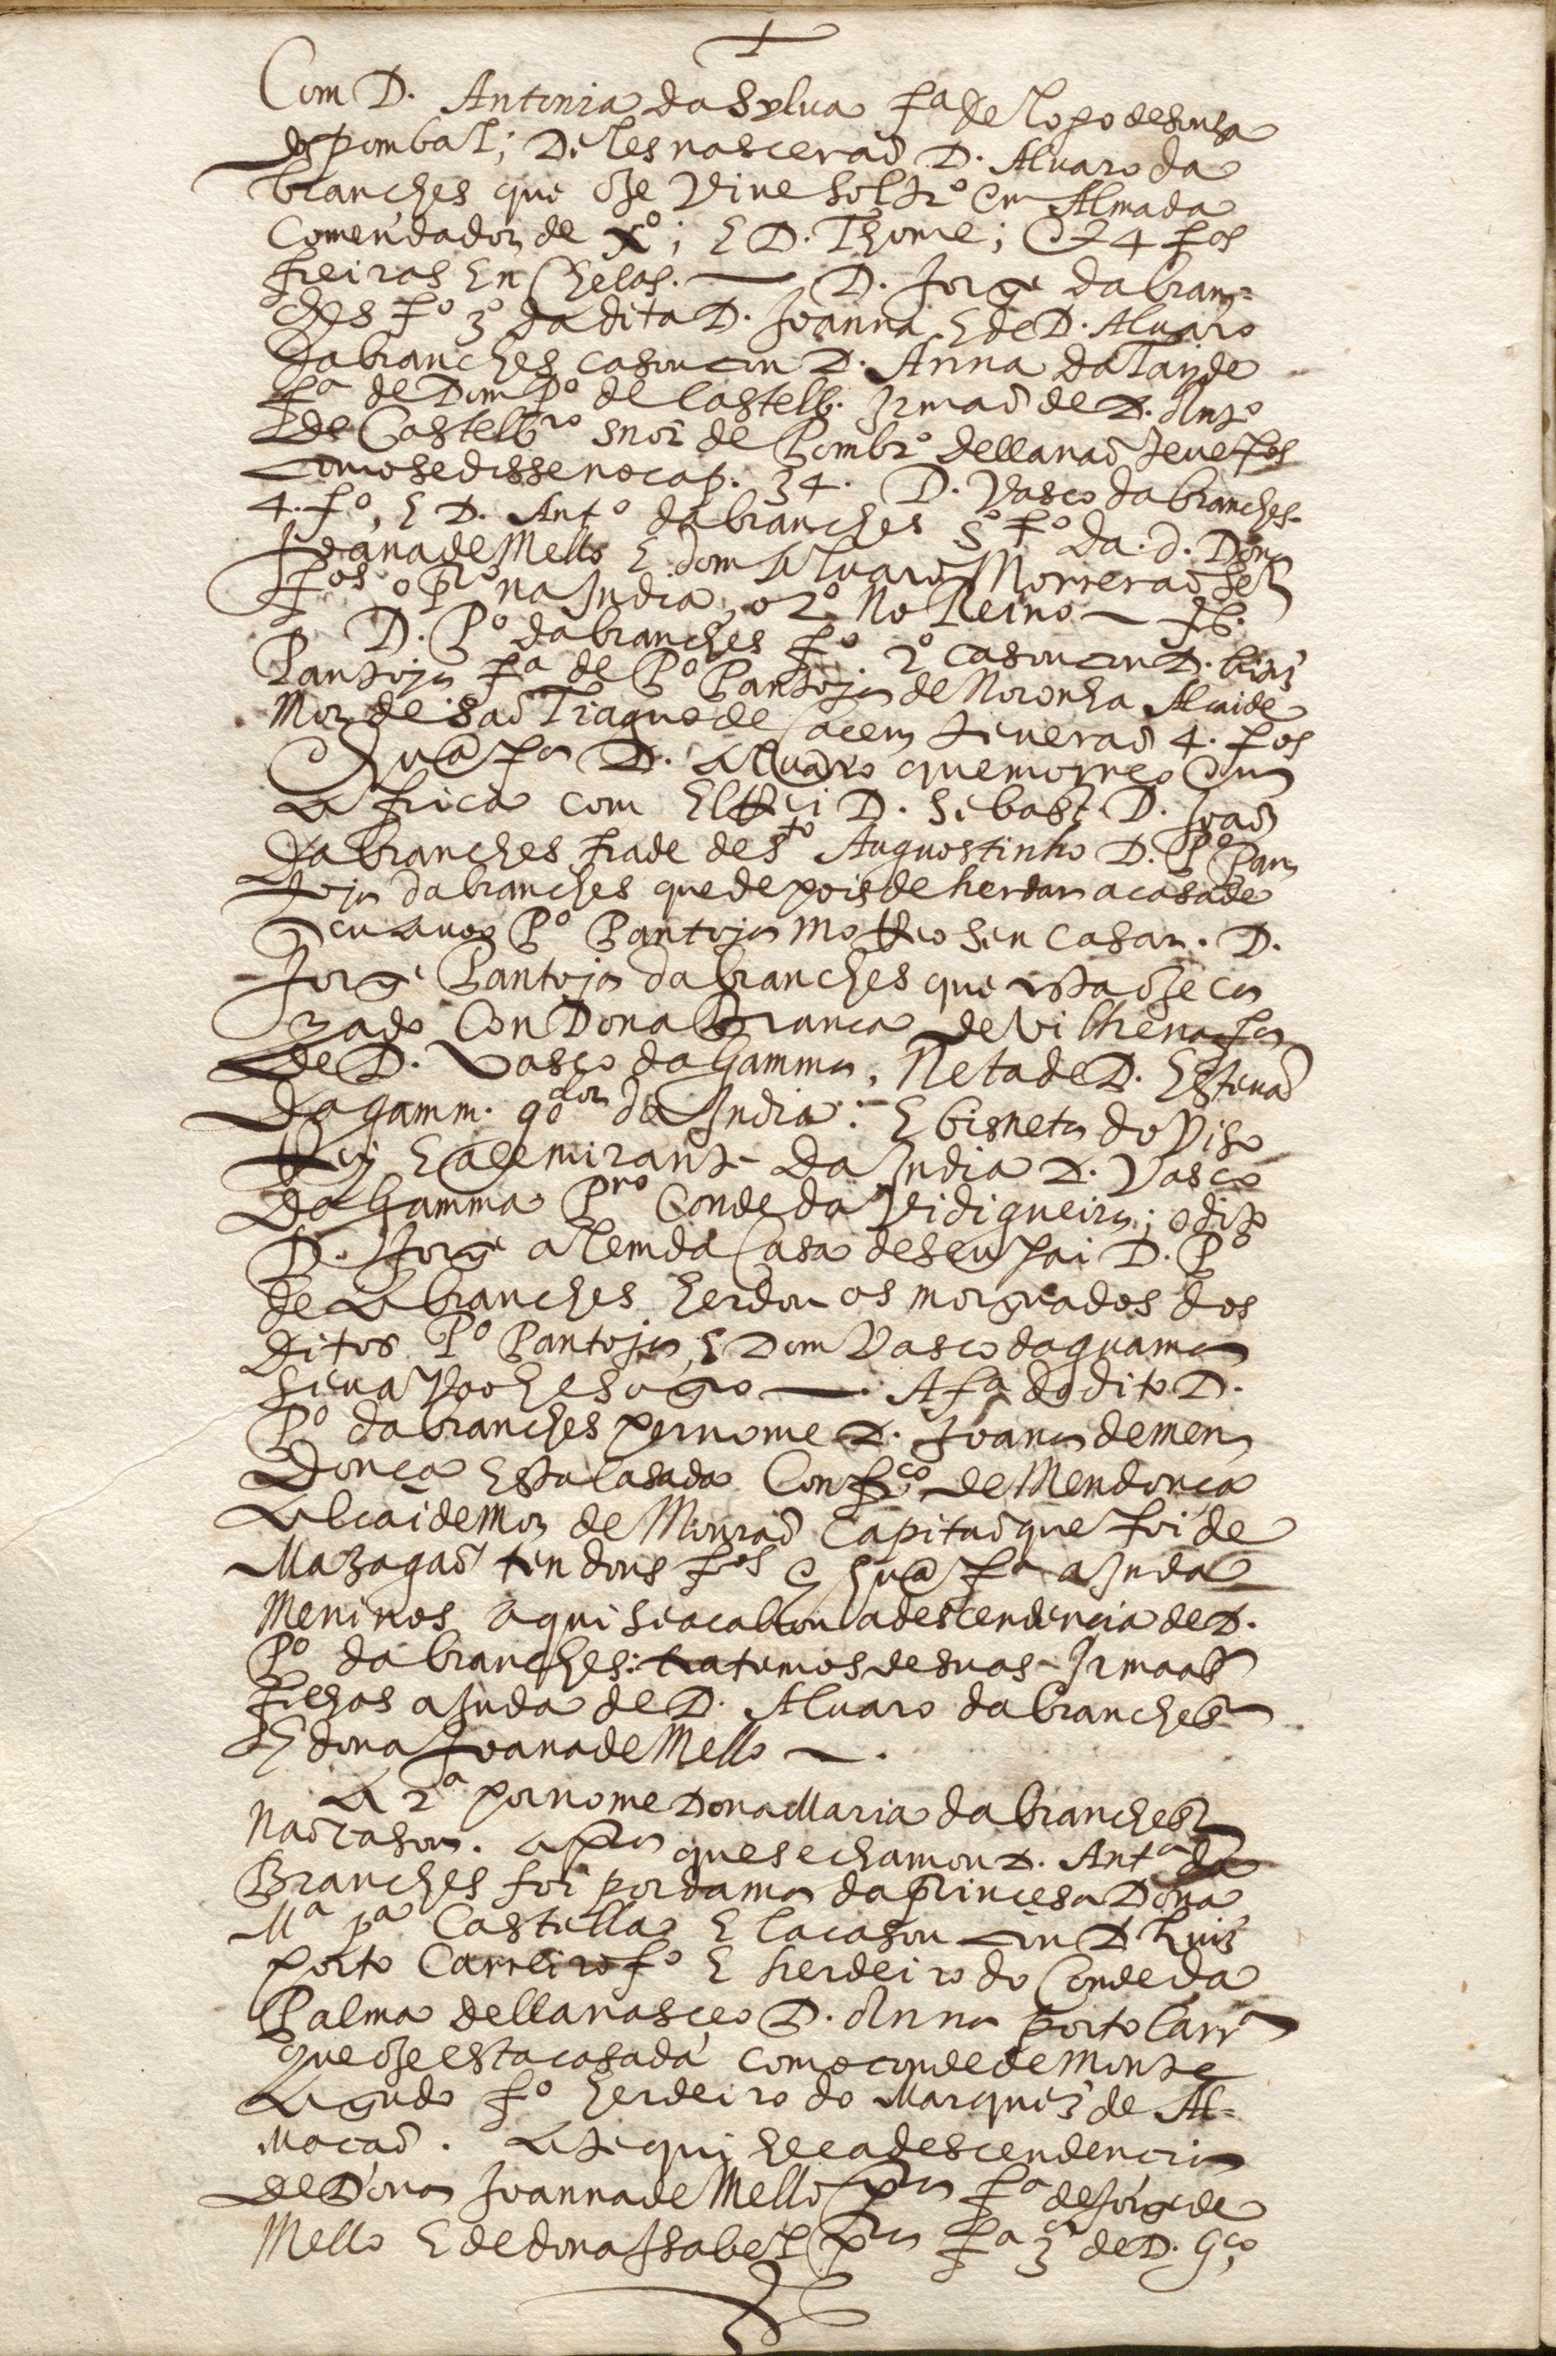 Com D. Antonia da Sylva fa de Lopo de Sousa
do pombal; Delles nasceraõ D. Alvaro da
branches que oje vive soltro em Almada
Comendador de Xo; E D. Thome; E 4 fos
freiras En Chelas. — D. Jorge dabran=
ches fo 3o da dita D. Joanna E de D. Alvaro
Dabranches casou con D. Anna da Taide
fa de Dom Po de Castelb. Irmaõ de D. Anto
de Castelbro snor de Pombro dellanaõ teve fos
como se disse no cap. 34. D. Vasco dabranches
4. fo, E D. Anto dabranches 5o fo da d. Dona
Joana de Mello E dom Alvaro Morreraõ sen
fos o Pro na India, o 2o No Reino —
D. Po dabranches fo 2o casou con D.
Pantoja fa de Po Pantoja de Noronha Alcaide
Mor de saõ Tiaguo de Cacem tiveraõ 4. fos
E hua fa D. Alvaro que morreo Em
Africa com ElRei D. Sebast. D. Joaõ
Dabranches frade de Sto Auguostinho D. Po Pan
toja dabranches que depois de herdar a casa de
seu avoo Po Pantoja moRReo sen casar. D.
Jorge Pantoja dabranches que esta oje ca
zado Con Dona Branca de Vilhena fa
de D. Vasco da Gamma, Neta de D. Estevaõ
da gamm. gdor da India: E bisneta do Viso
Rey E alemirante da India D. Vasco
da Gamma Pro Conde da Vidigueira; o dito
D. Jorge alem da Casa de seu pai D. Po
de Abranches herdou os morguados dos
Ditos Po Pantoja, E Dom Vasco daguama
seu avoo E sogro —. A fa do dito D.
Po dabranches per nome D. Joana de men
donça Esta Casada Con fco de Mendonça
Alcaide Mor de Mouraõ Capitaõ que foi de
Mazagaõ ten dous fos E hua fa ajnda
Meninos aqui se acabou a descendencia de D.
Po dabranches: tratemos de suas Irmaas
filhas ajnda de D. Alvaro dabranches
E dona Joana de Mello —.
A 2a por nome Dona Maria dabranches
Naõ casou. a pra que se chamou D. Anta da
Branches foi por dama da princesa Dona
Ma pa Castella E la casou con D Luis
porto Carreiro fo E herdeiro do Conde da
Palma della nasceo D. Anna porto Carro
que oje esta casada com o conde de Monte
Agudo fo herdeiro do Marques de Al=
Maçaõ. Ate qui he a descendencia
de Dona Joanna de Mello pra fa de Jorge de
Mello E de dona Isabel pra fa 3a de D. Gco